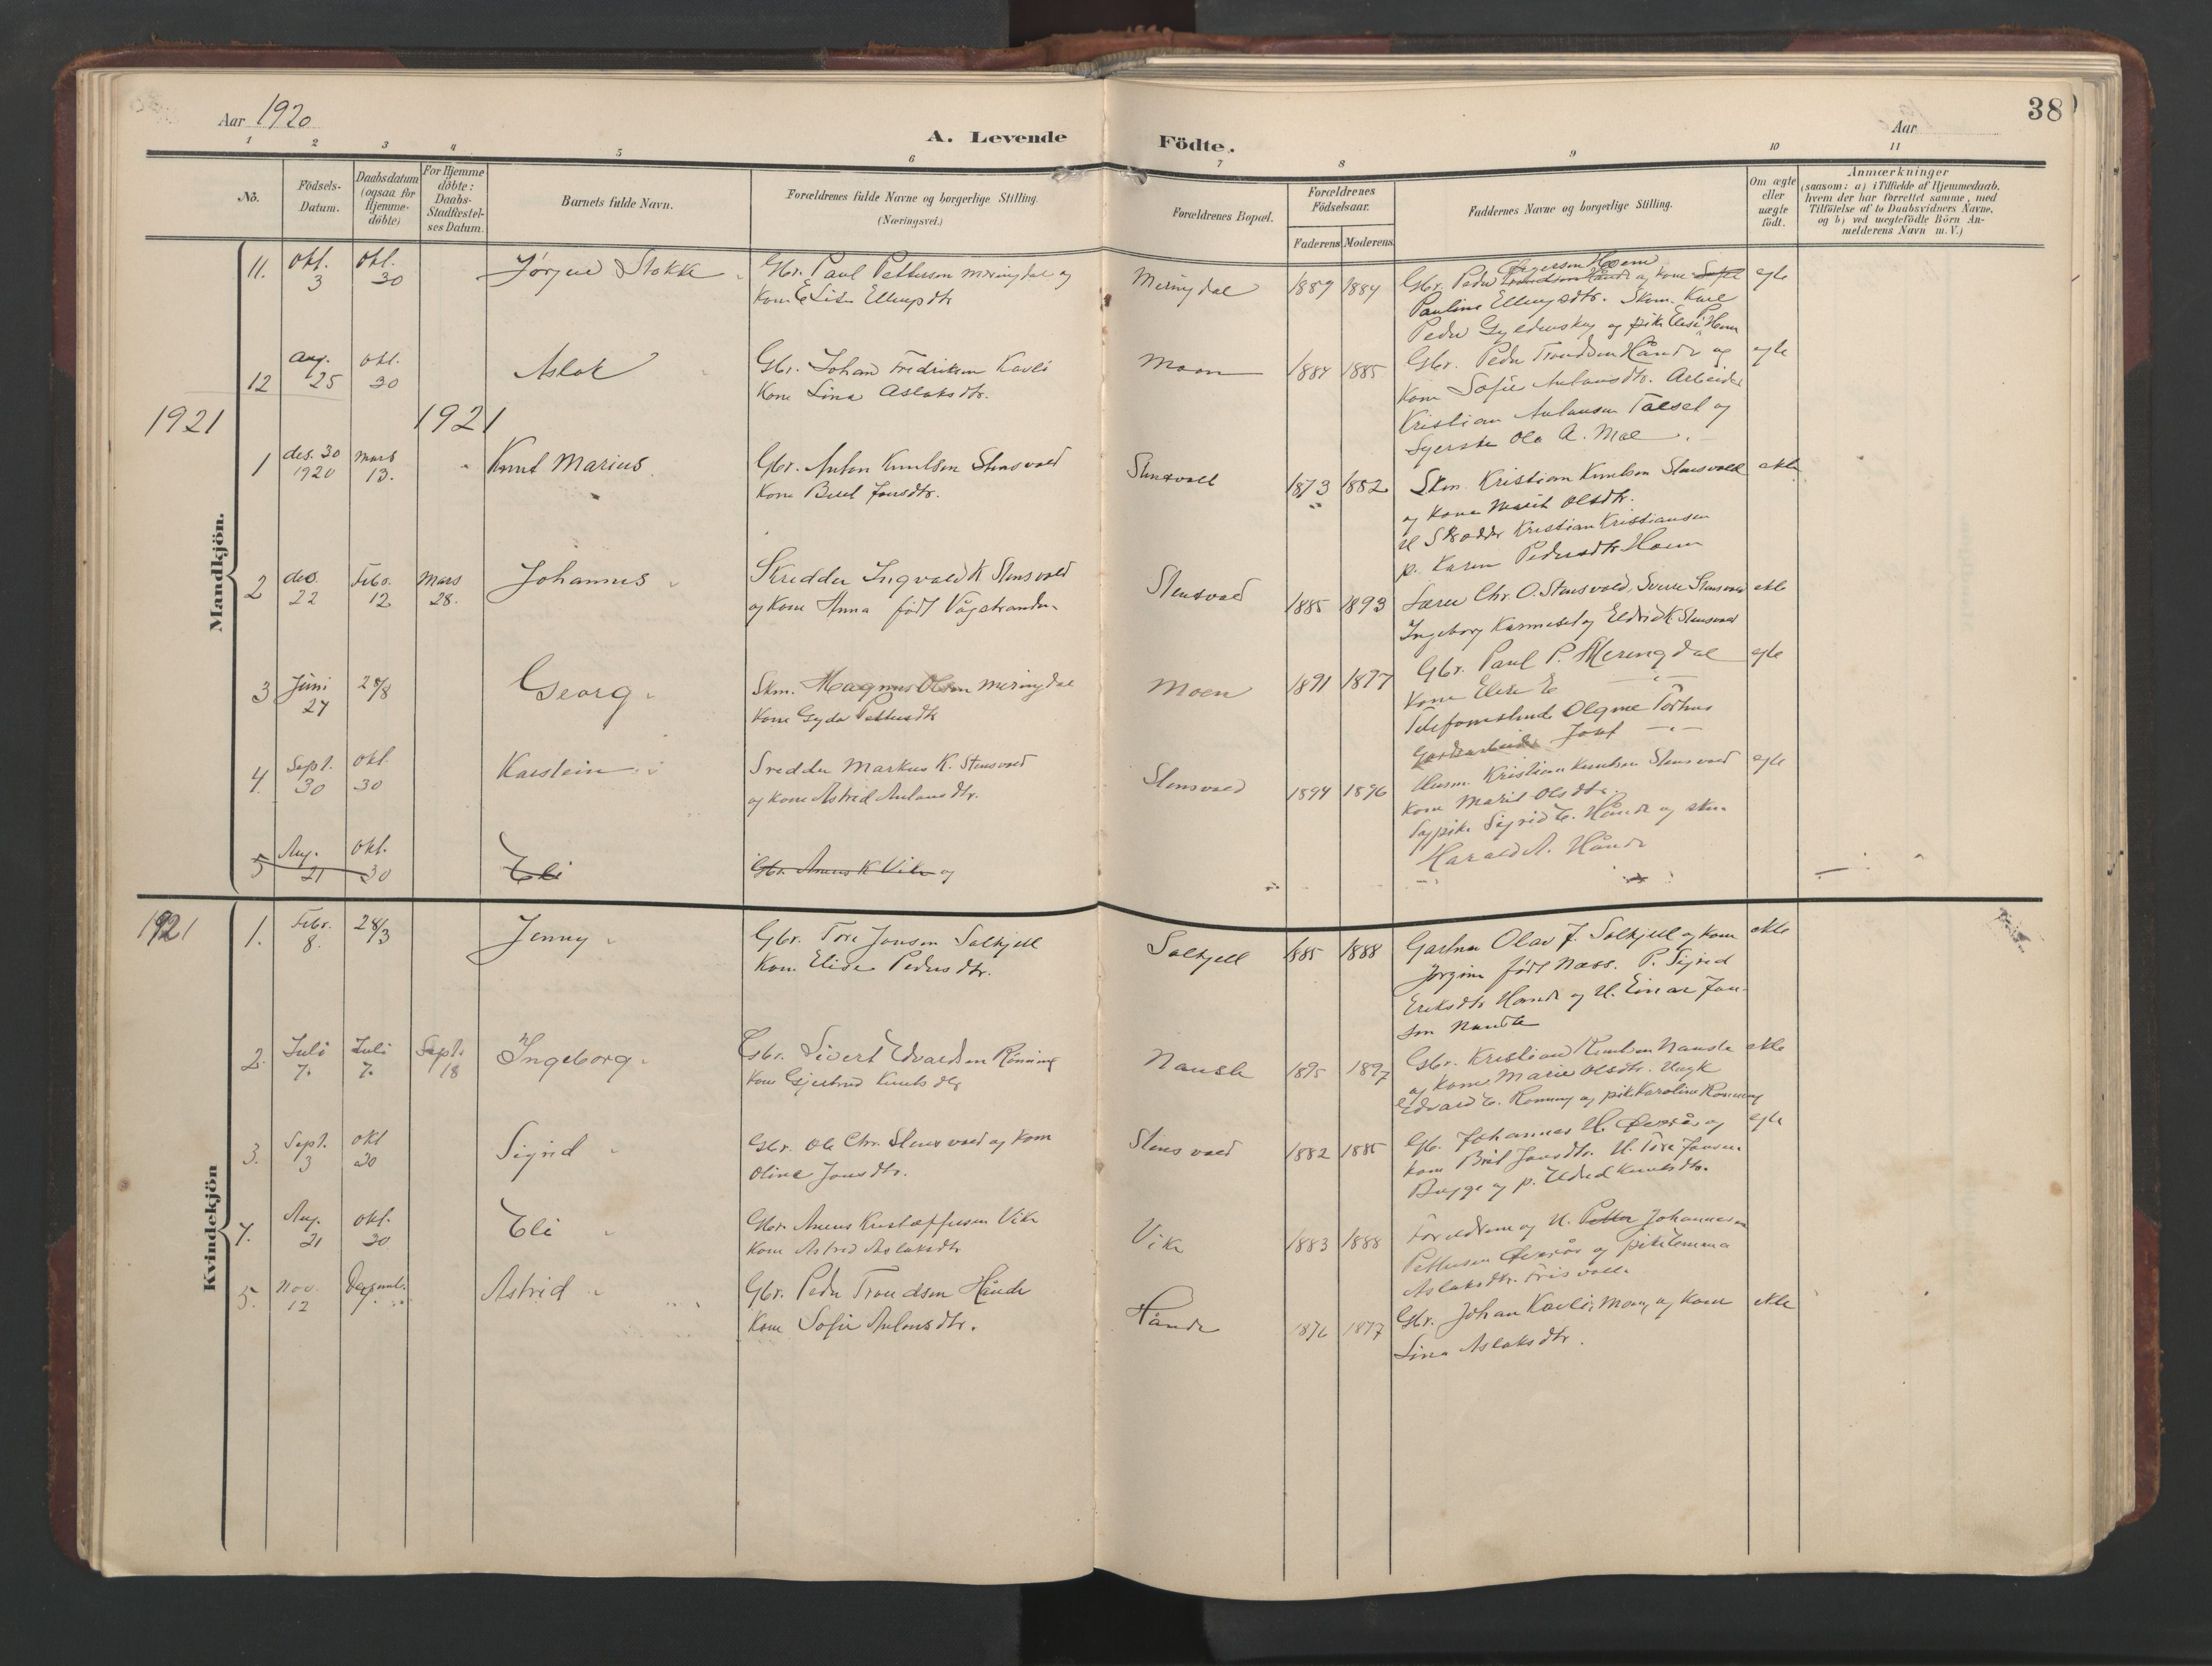 Aar 1920
A. Levende
Födte.
Aar
38
1 2 3 4 5 6 7 8 9 10 11
No.
Födsels-
Datum.
Daabsdatum
(ogsaa for
Hjemme-
döbte)
For Hjemme
döbte:
Daabs-
Stadfæstel-
ses Datum.
Barnets fulde Navn.
Forældrenes fulde Navne og borgerlige Stilling.
(Næringsvei.)
Forældrenes Bopæl.
Forældrenes
Födselsaar.
Faderens Moderens
Faddernes Navne og borgerlige Stilling.
Om ægte
eller
uægte
födt.
Anmærkninger
(saasom: a) i Tilfælde af Hjemmedaab,
hvem der har forrettet samme, med
Tilföielse af to Daabsvidners Navne,
og b) ved uægtefödte Börn An-
melderens Navn m. V.)
Mandkjön.
11. Okt. 3 Okt. 30 Jørgen Stokke
Gbr. Paul Pettersen Meringdal og
Kone Elise Ellingsdtr
Meringdal 1889 1884
Gbr. Peder Hoem og Kone
Pauline Ellingsdtr. Skom. Karl
Peder Gyldenskog og pike Elise P. Hoem
egte
12 Aug. 25 Okt. 30 Aslak
Gbr. Johan Fredriksen Kavli
Kone Lina Aslaksdtr.
Moen 1884 1885
Gbr. Peder Trondsen Hånde og
Kone Sofie Antonsdtr. Arbeider
Kristian Antonsen Talset og
Ola A. Moe
egte
1921 1921
1 des. 30 1920 Mars 13. Knut Marius
Gbr. Anton Knutsen Stensvold
Kone Berit Jonsdtr.
Stensvold 1873 1882
Skm. Kristian Knutsen Stensvold
og Kone Marit Olsdtr.
U Skrædder Kristian Kristiansen
p. Karen Pedersdtr Hoem
ekte
2 des. 22 Febr. 12 Mars 28. Johannes
Skredder Ingvald K Stensvold
og Kone Anna født Vågstranda
Stensvold 1885 1893
Lærer Chr. O. Stensvold, Sverre Stensvold
Ingeborg Kasmeset og Eldrid K Stensvold
ekte
3 Juni 27 28/8 Georg
Skm. Magnus Olsen Meringdal
Kone Gyda Pettersdtr
Moen 1891 1897
Gbr. Paul P. Meringdal
Kone Elise E
Olgine Torhus
Gardsarbeider Josef
egte
4. Sept. 30 Okt. 30 Karstein
Sredder Markus K. Stensvold
og Kone Astrid Antonsdtr.
Stensvold 1894 1896
Husm. Kristian Knutsen Stensvold
Kone Marit Olsdtr.
Sypike Sigrid E. Hånde og skm.
Harald A. Hånde
egte
5 Aug. 21 Okt. 30 Eli
Gbr. Amus K Vike og
1921
Kvindekjön
1. Febr. 8. 28/3 Jenny
Gbr. Tore Jonsen Solkjell
Kone Elise Pedersdtr.
Solkjell 1885 1888
Gartner Olav J. Solkjell og Kone
Jørgine født Næss. P. Sigrid
Eriksdtr Hånde og U. Einar Jon-
sen Nauste
ekte
2. Juli 7. Juli 7. Sept. 18 Ingeborg
Gbr. Sivert Edvardsen Rönning
Kone Gjertrud Knutsdtr
Nauste 1895 1897
Gbr. Kristian Knutsen Nauste
og Kone Marie Olsdtr. Ungk
Edvard E. Rönning og pike Karoline Rönning
ekte
3. Sept. 3 Okt 30 Sigrid
Gbr. Ole Chr. Stensvold og Kone
Olina Jonsdtr.
Stensvold 1882 1885
Gb. Johannes H. Øverås og
Kone Brit Jonsdtr. U. Tore Jonsen
Bugge og p. Eldrid Knutsdtr.
egte
4. Aug. 21 Okt. 30 Eli
Gbr. Amus Kristoffersen Vike
Kone Astrid Aslaksdtr
Vike 1883 1888
Foreldrene og U. Petter Johannesen
Pettersen Øverås og pike Emma
Aslaksdtr. Frisvoll
5. Nov. 12 Astrid
Gbr. Peder Trondsen Hånde
Kone Sofie Antonsdtr.
Hånde 1876 1877
Gbr. Johan Kavli, Moen, og Kone
Lina Aslaksdtr.
ekte